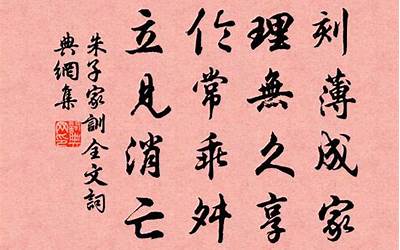 刻薄成家
理無久享
伦常乖舛
立見消亡
朱子家訓全文詞
典網集